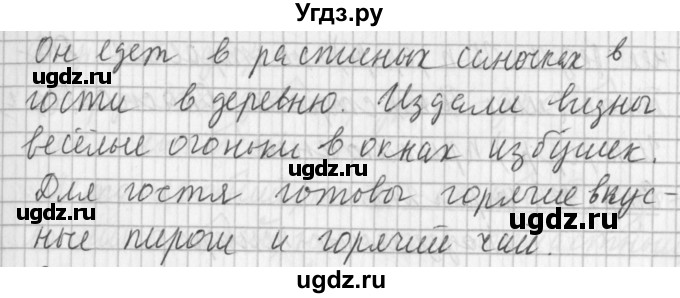 Угдз.ру
Он едет в расписных саночках в
гости в деревню. Издали видны
весёлые огоньки в окнах избушек.
Для гостя готовы горячие вкус-
ные пироги и горячий чай.
ugdz.ru
ugdz.ru
ugdz.ru
ugdz.ru
ugdz.ru
ugdz.ru
ugdz.ru
ugdz.ru